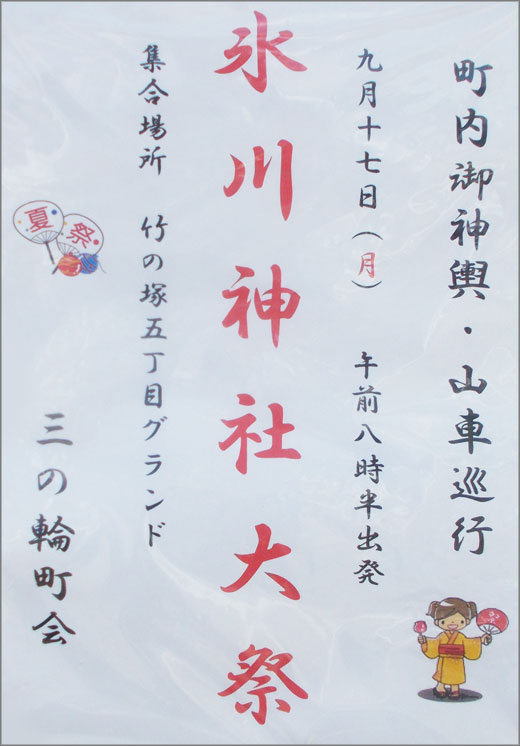 町内御神輿・山車巡行
九月十七日(月) 午前八時半出発
氷川神社大祭
集合場所 竹の塚五丁目グランド
夏祭
三の輪町会